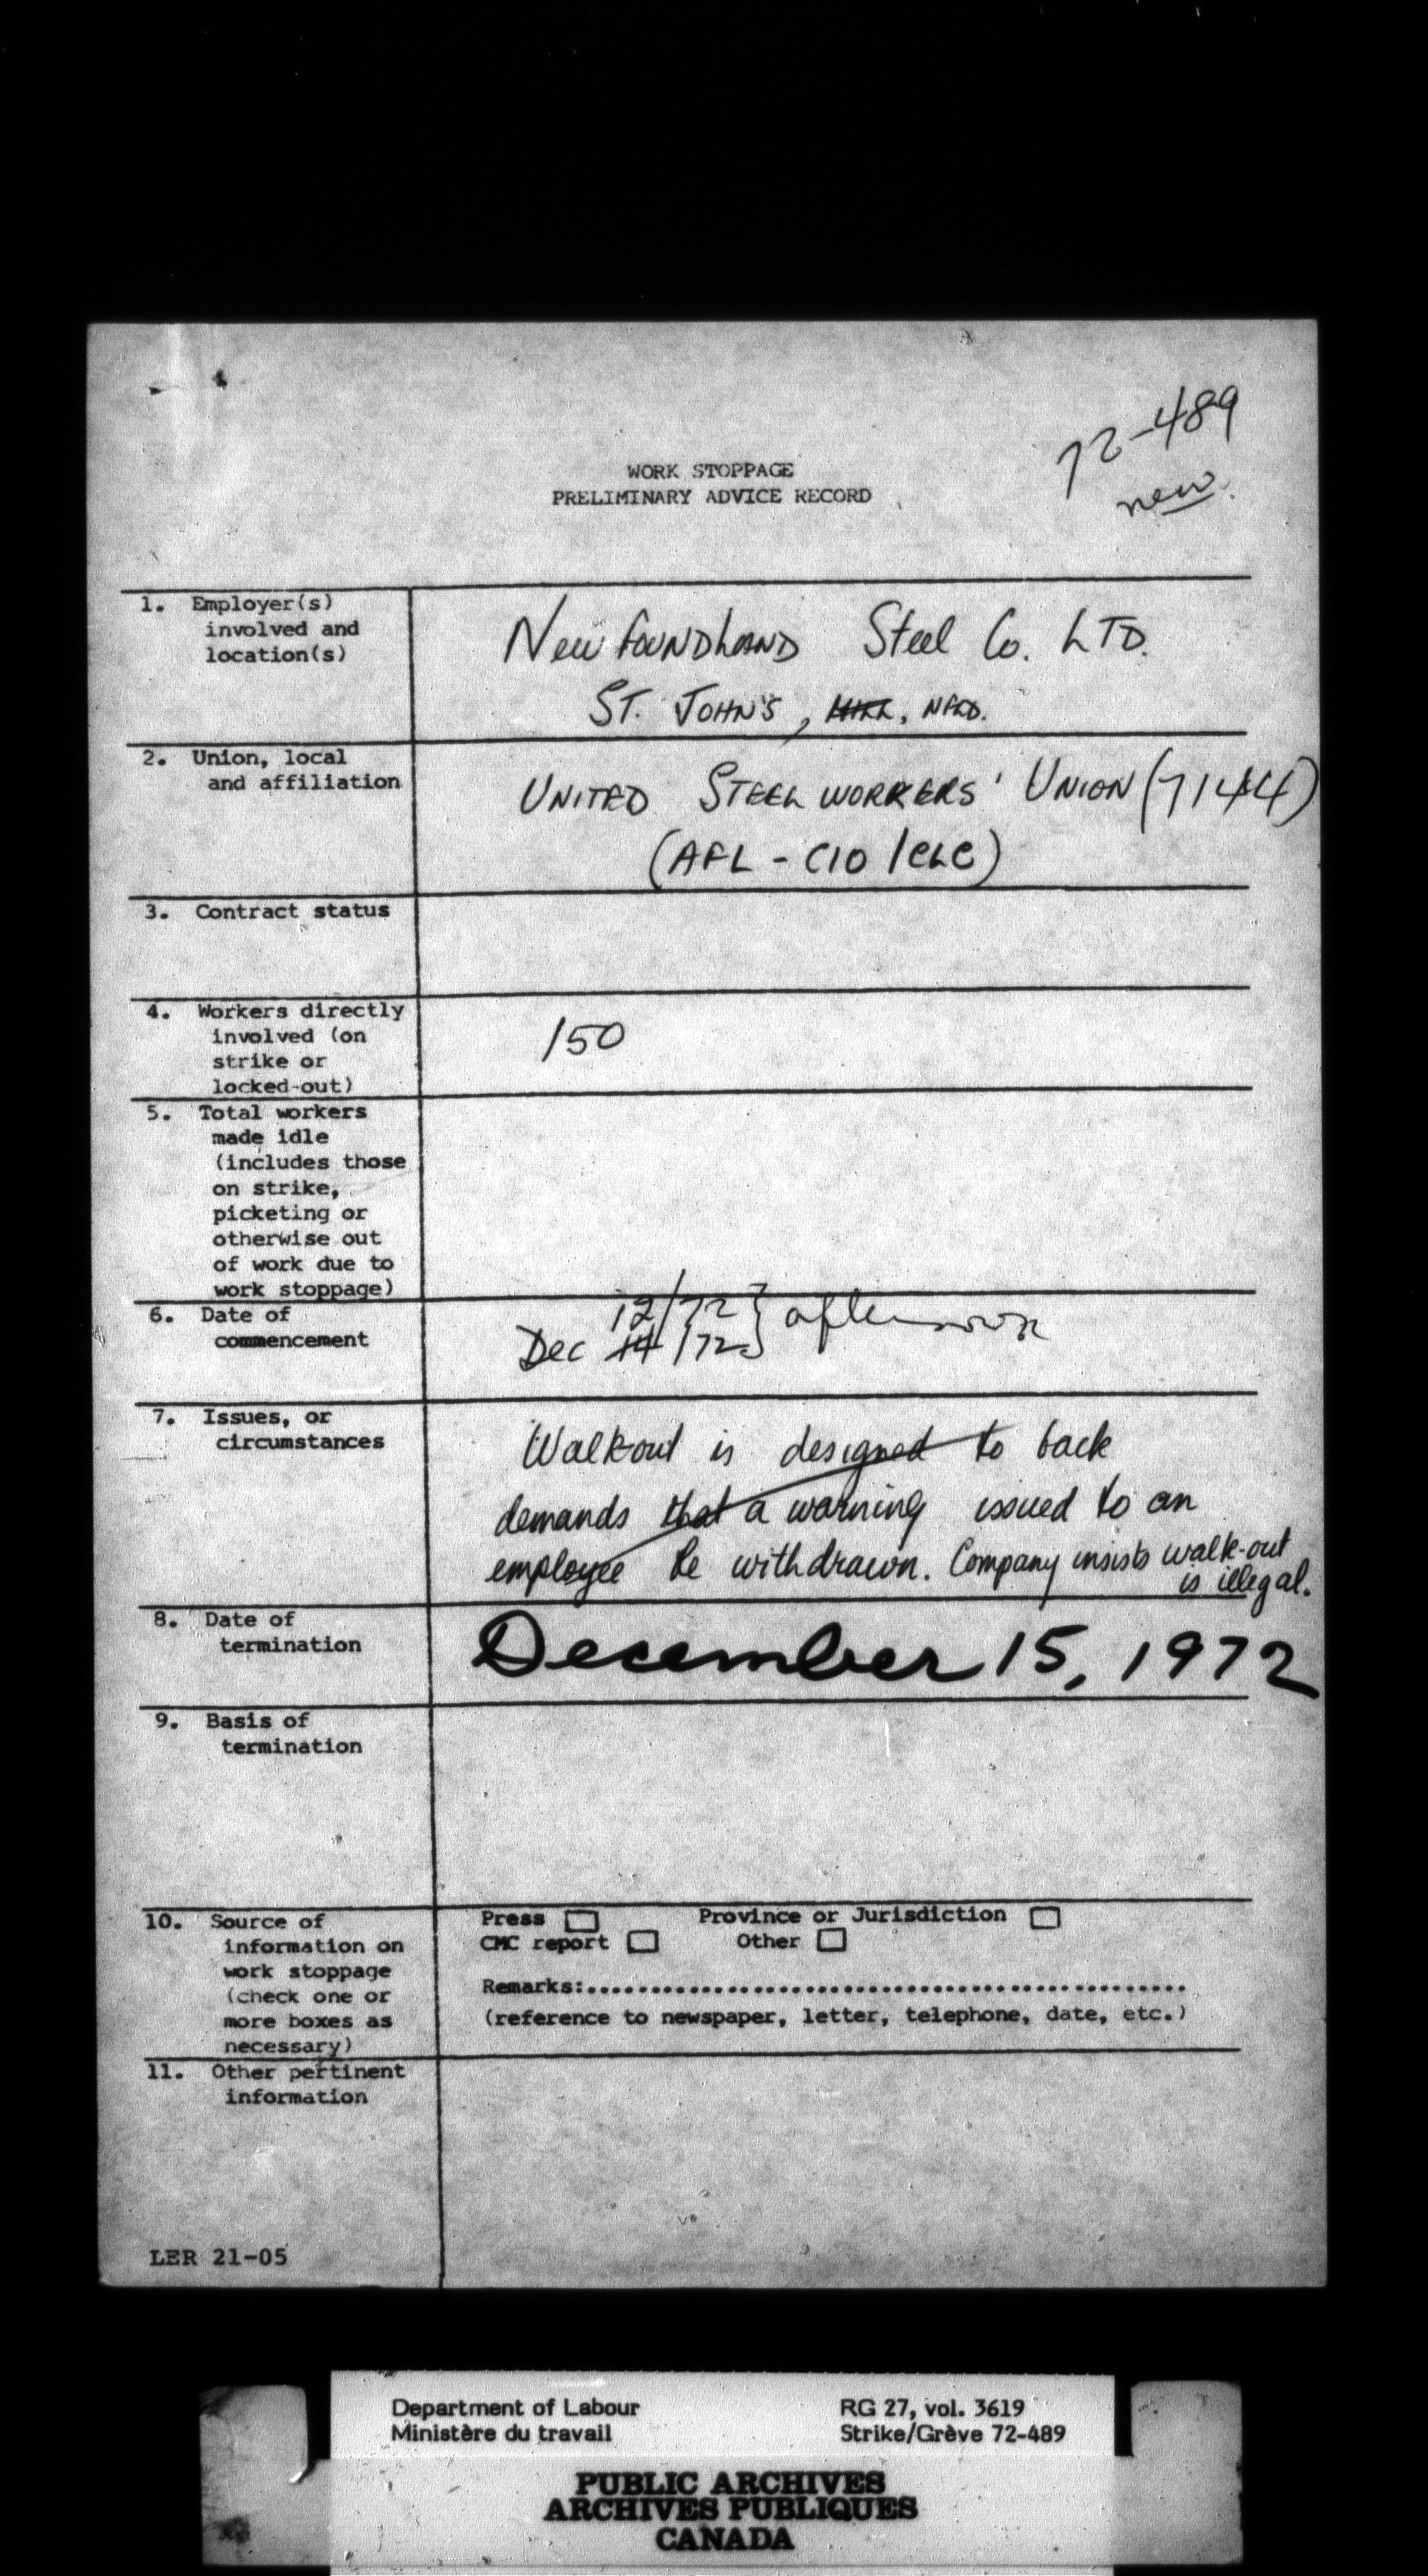 72-489
new.
WORK STOPPAGE
PRELIMINARY ADVICE RECORD
1. Employer(s)
involved and
location(s)
Newfoundland Steel Co. LTD.
ST. JOHN'S, , NFLD.
2. Union, local
and affiliation
UNITED STEELWORKERS' UNION (7144)
(AFL - CIO / CLC)
3. Contract status
4. Workers directly
involved (on
strike or
locked-out)
150
5. Total workers
made idle
(includes those
on strike,
picketing or
otherwise out
of work due to
work stoppage)
6. Date of
commencement
12/72 } afternoon
Dec 14/72
7. Issues, or
circumstances
Walk-out is designed to back
demands that a warning issued to an
employee be withdrawn. Company insists walk-out
is illegal.
8. Date of
termination
December 15, 1972
9. Basis of
termination
10. Source of
information on
work stoppage
(check one or
more boxes as
necessary)
Press □ Province or Jurisdiction □
CMC report □ Other □
Remarks:...............................................
(reference to newspaper, letter, telephone, date, etc.)
11. Other pertinent
information
LER 21-05
Department of Labour
Ministère du travail
RG 27, vol. 3619
Strike/Grève 72-489
PUBLIC ARCHIVES
ARCHIVES PUBLIQUES
CANADA